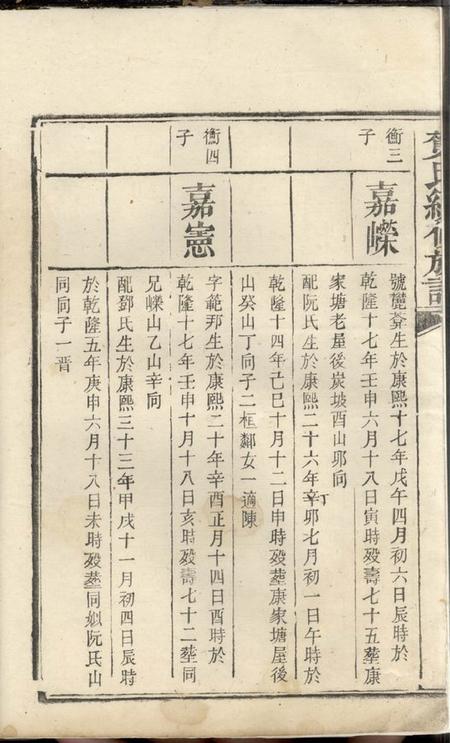 賀氏續修族譜
衡三
子
嘉嶸
號
生於康熙十七年戊午四月初六日辰時於
乾隆十七年壬申六月十八日寅時歿壽七十五葬康
家塘老屋後炭坡酉山卯向
配阮氏生於康熙二十六年辛丁卯七月初一日午時於
乾隆十四年己巳十月十二日申時歿葬康家塘屋後
山癸山丁向子二桓鄰女一適陳
衡四
子
嘉憲
字範邦生於康熙二十年辛酉正月十四日酉時於
乾隆十七年壬申十月十八日亥時歿壽七十二葬同
兄嶸山乙山辛向
配鄧氏生於康熙三十三年甲戌十一月初四日辰時
於乾隆五年庚申六月十八日未時歿葬同姒阮氏山
同向子一晋